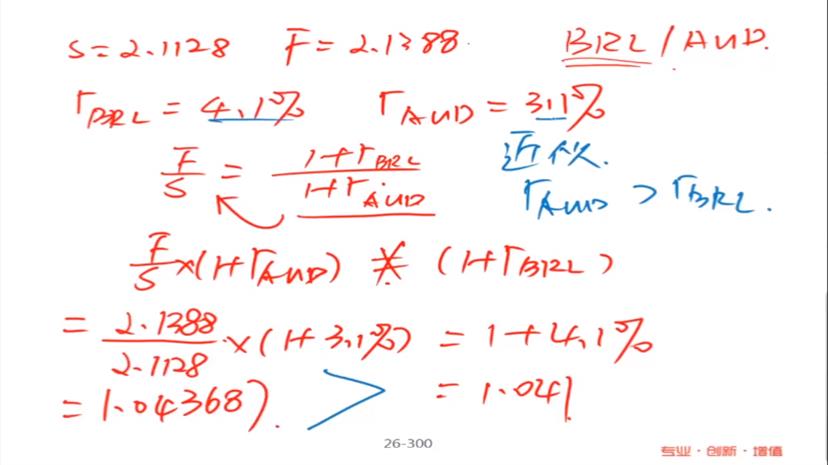 S = 2.1128 F = 2.1388 BRL / AUD.
rBRL = 4.1% rAUD = 3.1%
F/S = (1+rBRL)/(1+rAUD) 近似.
rAUD > rBRL.
F/S ×(1+rAUD) ≠ (1+rBRL)
= 2.1388/2.1128 ×(1+3.1%) = 1+4.1%
= 1.04368) > = 1.041
26-300
专业·创新·增值